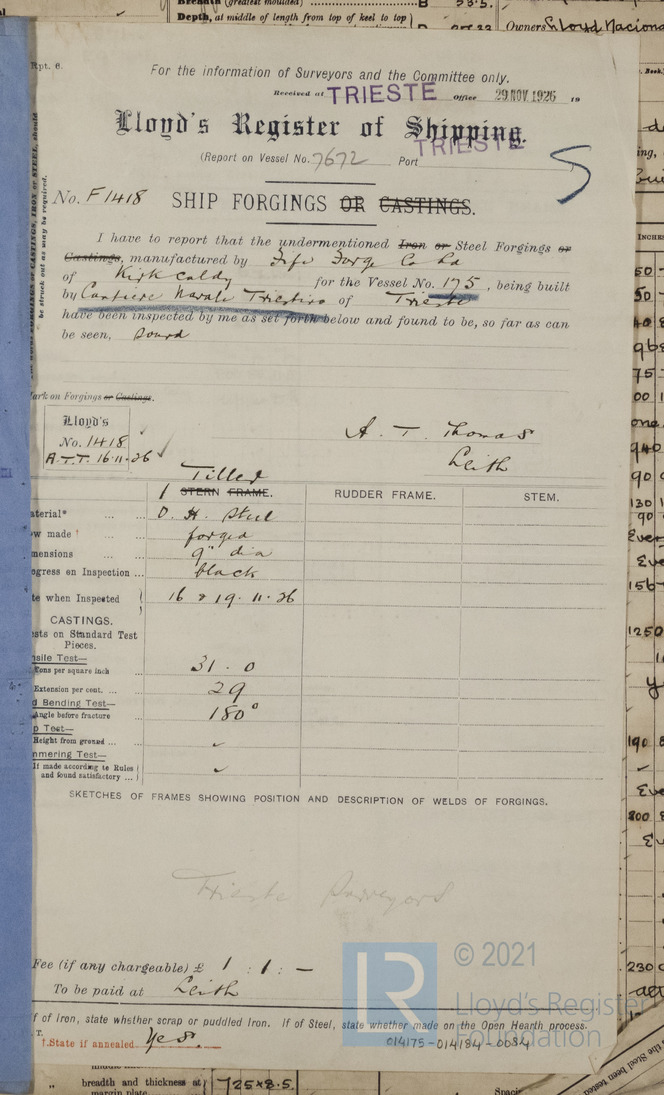 Breadth (greatest moulded)
Depth, at middle of length from top of keel to top
Owners Lloyd Naciona
Rpt. 6.
For the information of Surveyors and the Committee only.
Received at TRIESTE Office 29 NOV 1926 19
Lloyd's Register of Shipping.
(Report on Vessel No. 7672 Port TRIESTE
5
No. F 1418 SHIP FORGINGS OR CASTINGS.
I have to report that the undermentioned Iron or Steel Forgings or
Castings, manufactured by Fife Forge Co Ld
of Kirkcaldy for the Vessel No. 175, being built
by Cantiere Navale Triestino of Trieste
have been inspected by me as set forth below and found to be, so far as can
be seen, sound
Mark on Forgings or Castings.
Lloyd's
No. 1418
A.T.T. 16.11.26
A. T. Thomas
Leith
Tiller
1 STERN FRAME. RUDDER FRAME. STEM.
aterial* ... ... O. H. Steel
ow made ... forged
mensions ... 9" dia
ogress on Inspection ... black
te when Inspected 16 & 19. 11. 26
CASTINGS.
ests on Standard Test
Pieces.
nsile Test—
Tons per square inch 31. 0
Extension per cent. ... ... 29
d Bending Test—
Angle before fracture 180°
p Test—
Height from ground ... ... ✓
mmering Test—
If made according to Rules
and found satisfactory ... ✓
SKETCHES OF FRAMES SHOWING POSITION AND DESCRIPTION OF WELDS OF FORGINGS.
Trieste Surveyors
Fee (if any chargeable) £ 1 : 1 : —
To be paid at Leith
If of Iron, state whether scrap or puddled Iron. If of Steel, state whether made on the Open Hearth process.
†.State if annealed Yes.
014175-014184-0084
LR © 2021
Lloyd's Register
Foundation
breadth and thickness at
margin plate
725×8.5.